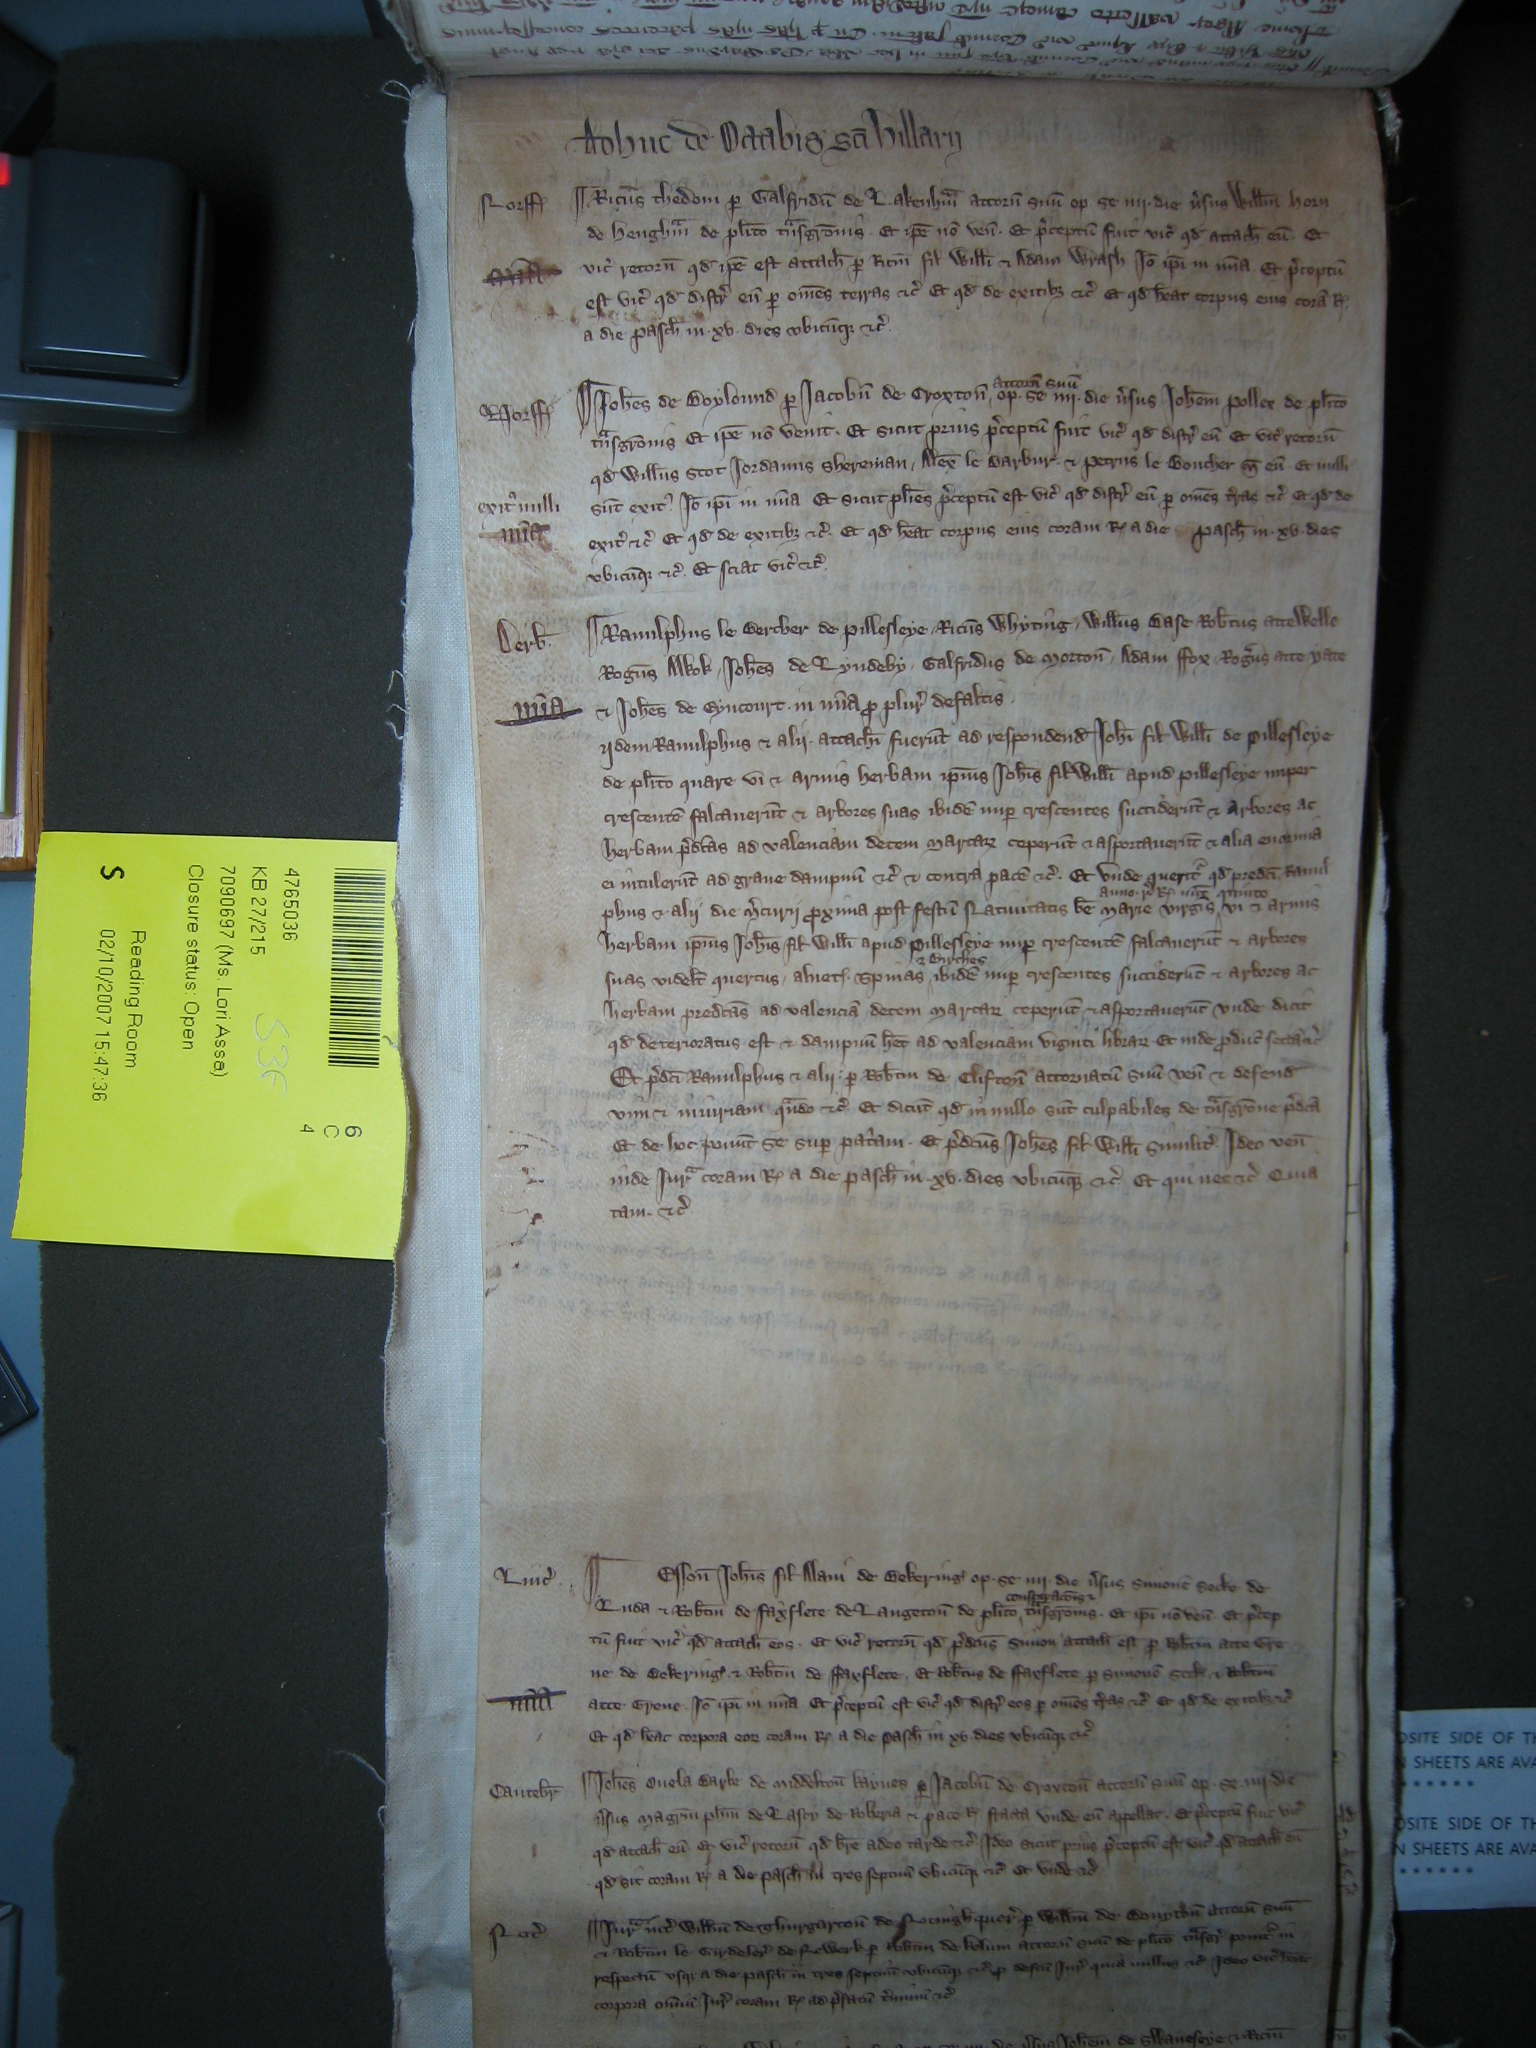 Adhuc de Octabis sci hillarij
Norff
Ricus thedom p Galfridu de Lakenhm attorn suu op se iiij die vsus Willm horn
de henghm de plito tnsgronis Et ipe no ven Et pceptu fuit vic qd attach eu Et
vic retorn qd ipe est attach p Ricm fil Willi & Adam Wrash Io ipi in mia Et pceptu
mia
est vic qd distr eu p omes terras &c Et qd de exitibz &c Et qd heat corpus eius cora R
a die pasch in xv dies vbicuqz &c
Norff
attorn suu
Johes de Boylound p Jacobu de Croxton op se iiij die vsus Johem pollex de plito
tnsgronis Et ipe no venit Et sicut prius pceptu fuit vic qd distr eu Et vic retorn
qd Willus Scot Jordanus Shereman Alex le Barbur & Petrus le Boucher eu Et nulli
exit nulli
sut exit Io ipi in mia Et sicut plies pceptu est vic qd distr eu p omes tras &c Et qd de
mia
exit &c Et qd de exitibz &c Et qd heat corpus eius coram R a die pasch in xv dies
vbicuqz &c Et sciat vic &c
Derb
Ranulphus le Bercher de Pillesleye Ricus Whyting Willus Base Robtus atteWelle
Rogus Alkok Johes de Lyndeby Galfridus de Morton Adam ffox Rogus atte yate
mia
& Johes de Eyncourt in mia p plur defaltis
ijdem Ranulphus & alij attach fuerut ad respondend Johi fil Willi de Pillesleye
de plito quare vi & armis herbam ipius Johis fil Willi apud Pillesleye nuper
crescente falcauerut & arbores suas ibide nup crescentes succiderut & arbores ac
herbam pdcas ad valenciam decem marcar ceperut & asportauerut & alia enormia
ei intulerut ad graue dampnu &c & contra pace &c Et vnde querit qd predci Ranul
anno r R nuc quinto
phus & alij die mcurij proxima post festu Natiuitatis be Marie virgis vi & armis
herbam ipius Johis fil Willi apud Pillesleye nup crescente falcauerut & arbores
& Birches
suas videlt quercus alnet spinas ibide nup crescentes succiderut & arbores ac
herbam predcas ad valencia decem marcar ceperut & asportauerut vnde dicit
qd deterioratus est & dampnu het ad valenciam viginti librar Et inde produc secta &c
Et pdci Ranulphus & alij p Robtm de Clifton attornatu suu ven & defend
vim & iniuriam qndo &c Et dicut qd in nullo sut culpabiles de tnsgrone pdca
Et de hoc ponut se sup patiam Et pdcus Johes fil Willi similit Ideo ven
inde Jurata coram R a die pasch in xv dies vbicuqz &c Et qui nec &c Quia
tam &c
Linc
Esson Johis fil Alani de Bekering op se iiij die vsus Simone Secke de
conspiracois &
Luda & Robtm de faxflete de Langeton de plito tnsgronis Et ipi no ven Et pcep
tu fuit vic qd attach eos Et vic retorn qd pdcus Simon attach est p Robtm atte Gre
ne de Bekering & Robtm de ffaxflete Et Robtus de ffaxflete p Simone Seck & Robtm
mia
atte Grene Io ipi in mia Et pceptu est vic qd distr eos p omes tras &c Et qd de exitibz &c
Et qd heat corpora eor coram R a die Pasch in xv dies vbicuqz &c
Cantebr
Johes Barke de Middelton kaynes p Jacobu de Croxton attorn suu op se iiij die
vsus Magrm de Lascy de Roberia & pace R fracta vnde eu appellat Et pceptu fuit vic
qd attach eu Et vic retorn qd bre adeo tarde &c Ideo sicut prius pceptu est vic qd attach eu
qd sit coram R a die pasch in tres septim vbicuqz &c Et vnde &c
Not
Jurata int Willm de Thurgarton de Notingh quer p Willm de attorn suu
& Robtm le Girdeler de Newerk p Robtm de kelum attorn suu de plito tnsgr ponit in
respectu vsqz a die pasch in tres septim vbicuqz &c p defcu Jur quia nullus &c Ideo vic heat
corpora omiu Jur coram R ad pfatu tminu &c
4765036
KB 27/215
7090697 (Ms. Lori Assa)
Closure status: Open
Reading Room
02/10/2007 15:47:36
S
6
C
4
OSITE SIDE OF TH
N SHEETS ARE AVA
OSITE SIDE OF TH
N SHEETS ARE AVA